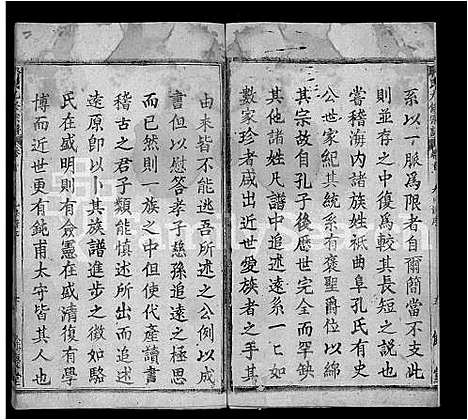 系以丁脈爲限者自爾簡當不支此
則並存之中復爲較其長短之說也
嘗稽海内諸族姓秖曲阜孔氏有史
公世家紀其統系有褒聖爵位以綿
其宗故自孔子後世完全而罕缺
其他諸姓凡譜中追述遠系一二如
數家珍者咸出近世愛族者之手其
由來皆不能逃吾所述之公例以成
書但以慰答孝子慈孫追遠之極思
而已然則一族之中但使代產讀書
稽古之君子類能慎述所出而追述
遠原卽以卜其族譜進步之徵如駱
氏在盛明則有簽憲在盛清復有學
博而近世更有鈍甫太守皆其人也
FamilySearch